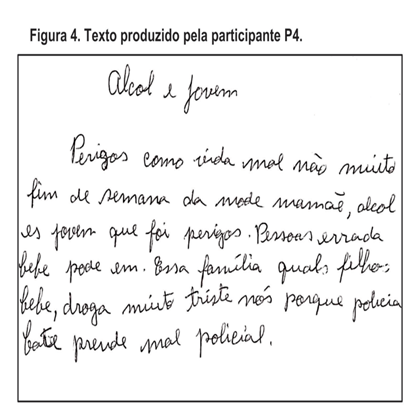 Figura 4. Texto produzido pela participante P4.
Alcol e Jovem
Perigos como vida mal não muito
fim de semana da mode mamaẽ, alcol
es jovem que foi perigos. Pessoas errada
bebe pode em. Essa família quals filho
bebe, droga muito triste nós porque policia
bate prende mal policial.